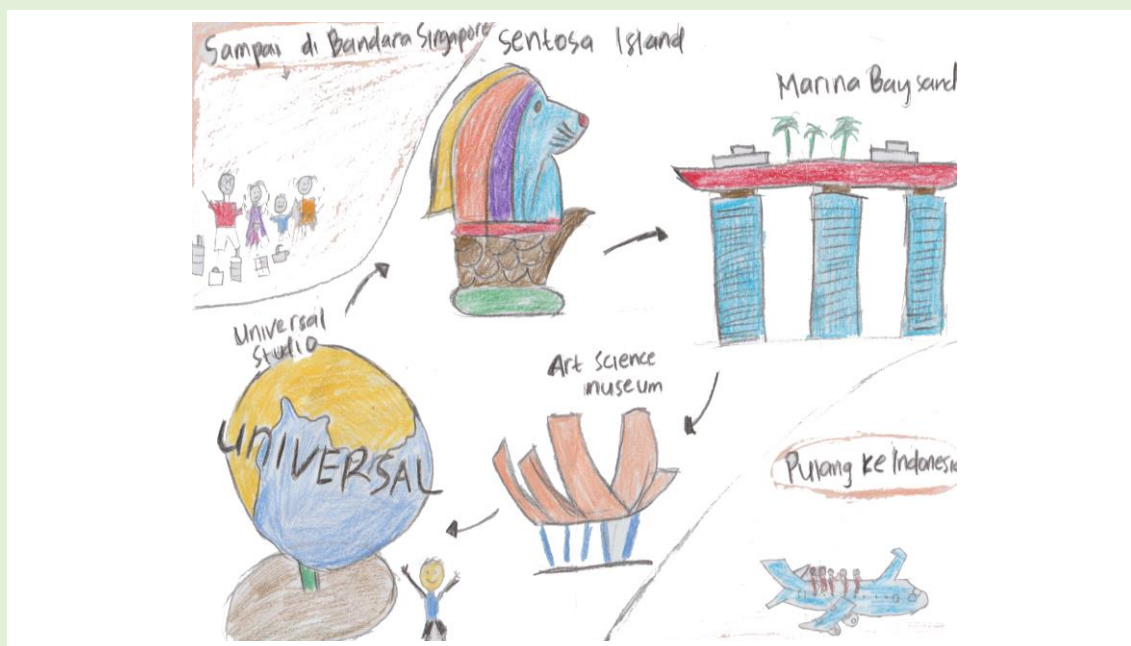 Sampai di Bandara Singapore
Sentosa Island
Marina Bay sand
Universal
Studio
UNIVERSAL
Art Science
museum
Pulang ke Indonesia